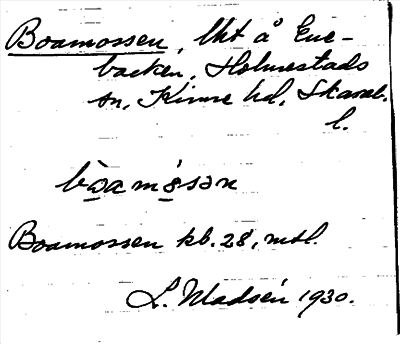 Boamossen, lkt å Ene-
backen, Holmestads
sn, Kinne hd, Skarab.
l.
bòamósən
Boamossen kb. 28, mtl.
L. Madsén 1930.